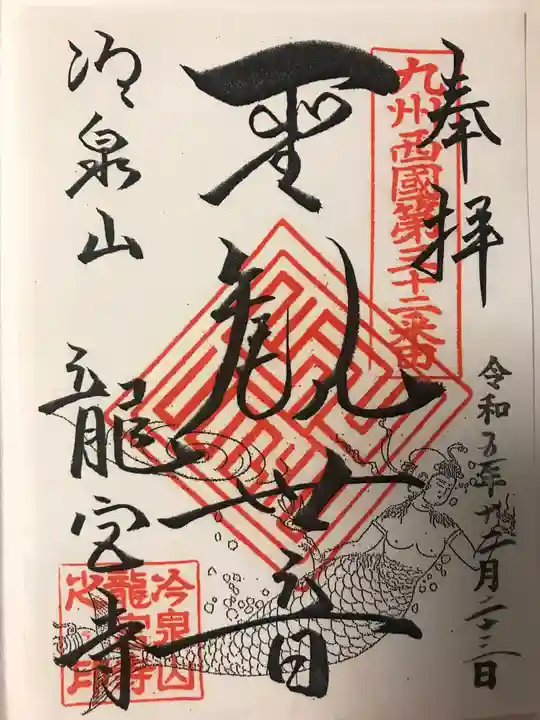 奉拝
九州西國第三十二番
令和五年十二月二十三日
聖観世音
冷泉山
龍宮寺
冷泉山
龍宮寺